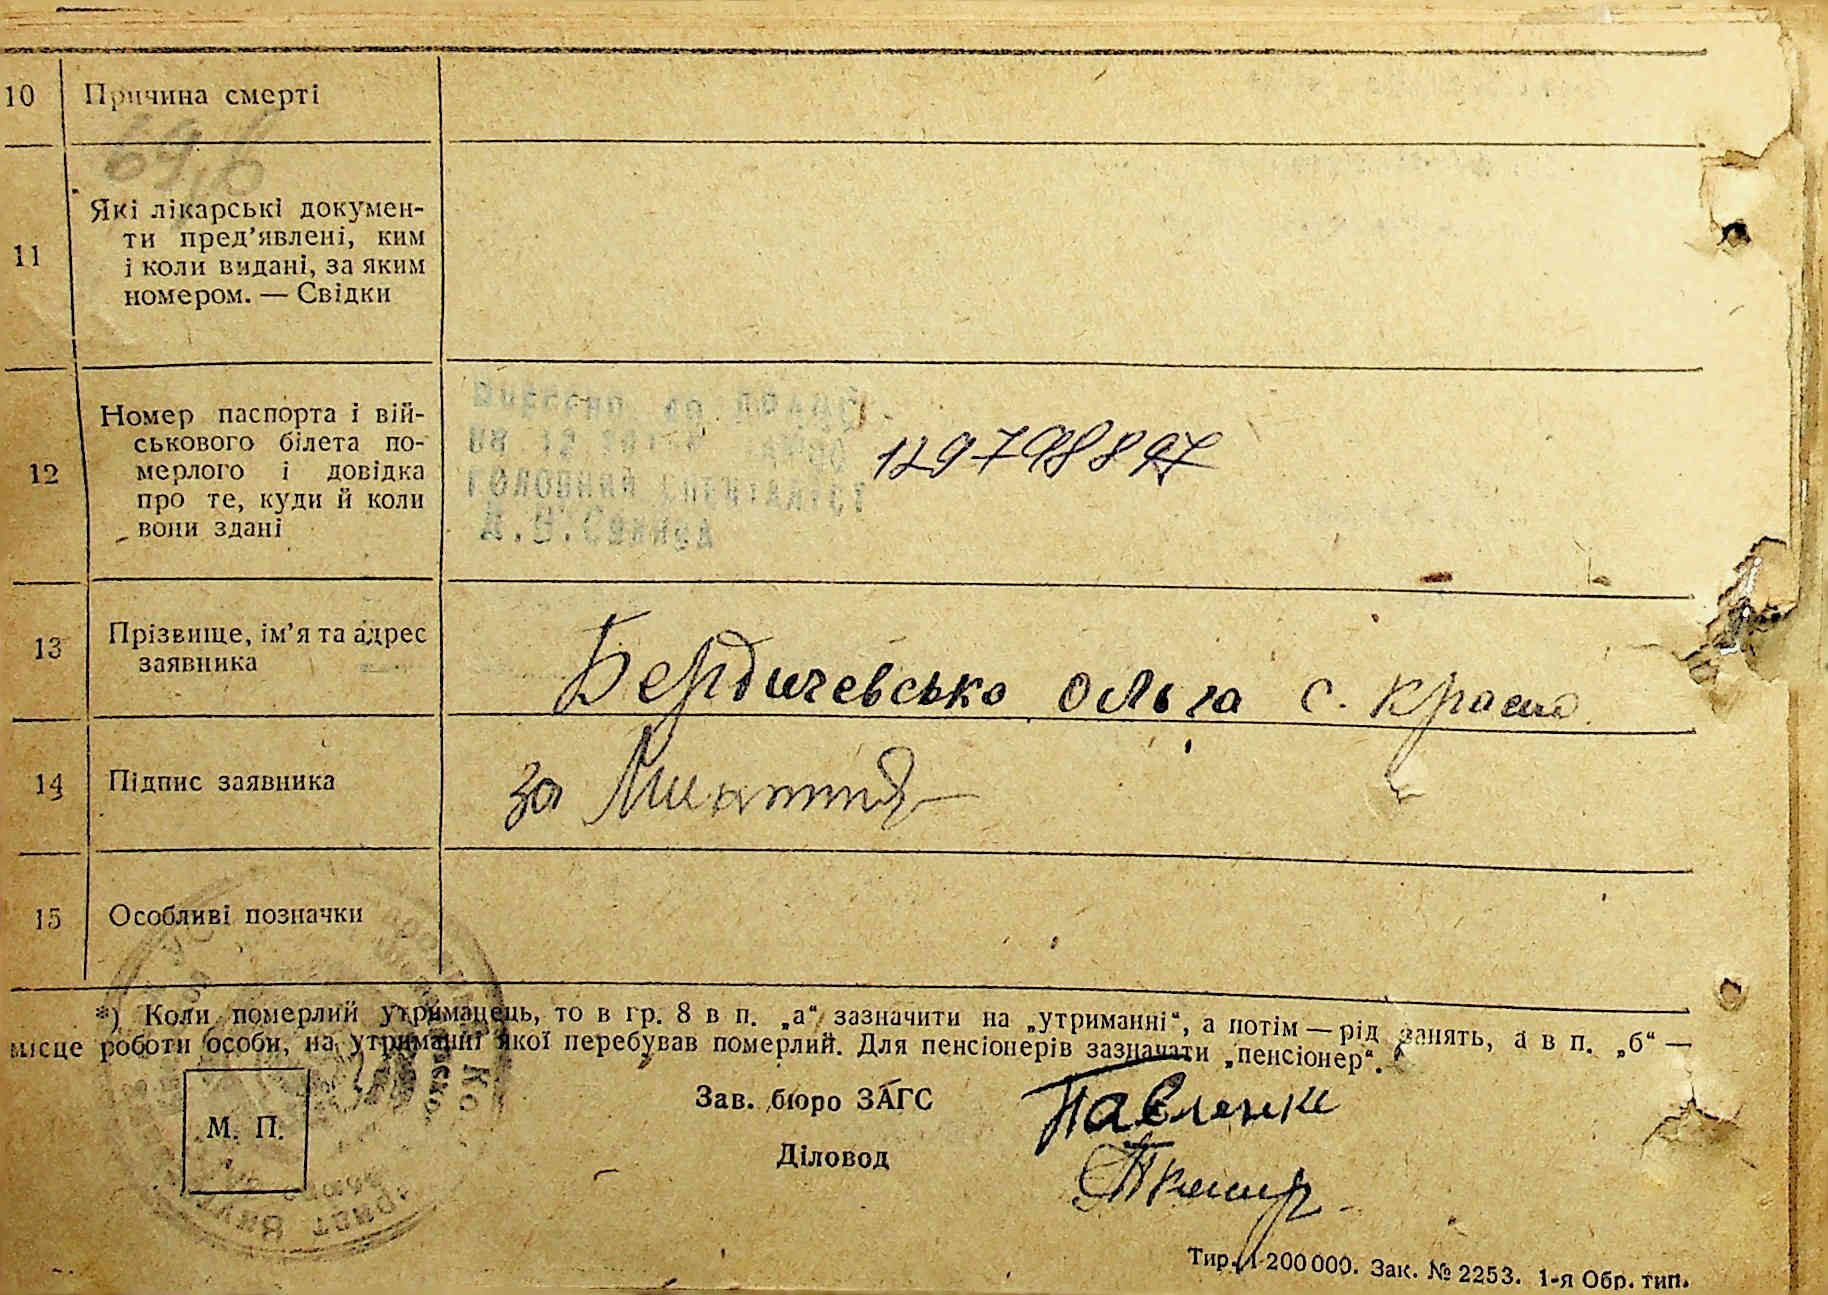 10 Причина смерті
69,6
11 Які лікарські докумен-
ти пред’явлені, ким
і коли видані, за яким
номером. — Свідки
12 Номер паспорта і вій-
ськового білета по-
мерлого і довідка
про те, куди й коли
вони здані
Внесено до
08 12
головний спеціаліст
129798897
13 Прізвище, ім’я та адрес
заявника
Бердичевсько Ольга с.
14 Підпис заявника
за
15 Особливі позначки
*) Коли померлий утриманець, то в гр. 8 в п. „а“ зазначити на „утриманні“, а потім — рід занять, а в п. „б“ —
місце роботи особи, на утриманні якої перебував померлий. Для пенсіонерів зазначати „пенсіонер“.
Зав. бюро ЗАГС Павленко
М. П.
Діловод
Тир. 1 200 000. Зак. № 2253. 1-я Обр. тип.